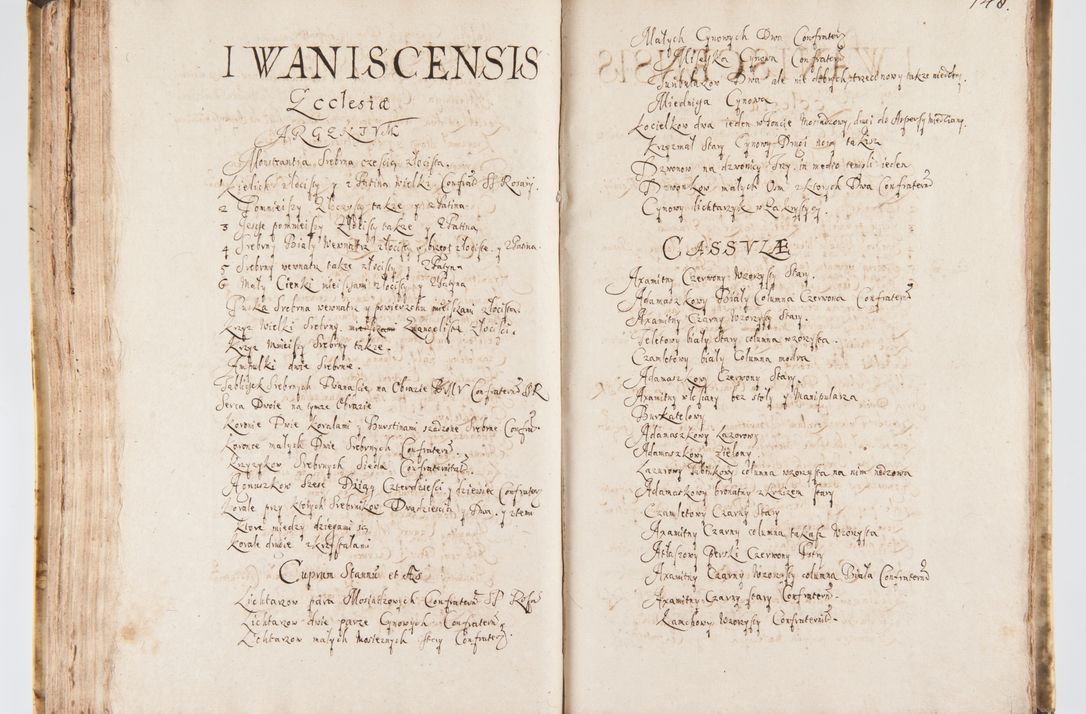 IWANISCENSIS
Ecclesiæ
ARGENTVM
Monstrantia Srebrna częscią złocista.
1 Kielich złocisty y z Patina wielki Confrat SS Rosarij.
2 Pomnieiszy Złocisty takze y z Patina
3 Jescze pomnieiszy Złocisty takze y z Patina
4 Srebrny Biały wewnatrz złocisty y brzegi złociste y z Patina.
5 Srebrny wewnatrz takze złocisty y z Patyna
6 Mały Cienki mieiscami złocisty y z Patyna
Puszka Srebrna wewnatrz y powierzchu mieiscami złocista.
Krzyz Wielki Srebrny Evangelistæ Złocisci.
Krzyz Mnieiszy Srebrny takze.
Ampułki dwie Srebrne.
Tabliczek Srebrnych Dwanascie na Obrazie BMV Confratern SSR
Serca Dwoie na tymze Obrazie
Koronie Dwie Koralami y Bursztinami sadzone Srebrne Confra
Koronce małych Dwie Srebrnych Confratern
Krzyzykow Srebrnych Siedm Confraternitatis.
Agnuszkow Szesc Dziąg Czterdziesci y dziewiec Confrater
Korale przy ktorych Srebrnikow Dwadziescia y Dwa. y z temi
ktore między dziegami są
Korale drugie z krzyształami
Cuprum Stannũ et Æs
Lichtarzow para Mosiadzowych Confratern SS Rosa
Lichtarzow dwie parze Cynowych Confratern
Lichtarzow małych mosieznych Confratern.
148.
Małych Cynowych Dwa Confratern
Miseczka Cynowa Confratern
Turibularzow Dwa ale nie dobrych, trzeci nowy takze miedziany.
Miednica Cynowa
Kociełkow dwa ieden Mosiadzowy, drugi do Aspersy Miedziany.
Kryzmal Stary Cynowy Drugi nowy takisz
Dzwonow na dzwonicy Trzy, in medio templi ieden
Dzwonkow małych Osm z ktorych Dwa Confratern
Cynowy lichtarzyk w Zakrystyey.
CASSVLÆ
Axamitny Czerwony Wzorzysty Stary.
Adamaszkowy Biały Columna Czerwona Confratern
Axamitny Czarny Wzorzysty Stary.
Teletowy biały Stary columna wzorzysta.
Czamletowy biały Columna modra
Adamaszkowy Czerwony Stary.
Axamitny wisniany bez stoły y Manipularza
Burkatelowy
Adamaszkowy Lazorowy
Adamaszkowy Zielony.
Lazurowy columna wzorzysta na nim nudzowa
Adamaskowy brunatny z krzizem stary
Czamletowy Czarny Stary
Axamitny Czarny columna takasz Wzorzysta
Atłasowy Perski Czerwony
Axamitny Czarny Wzorzysty columna Biała Confratern
Axamitny Czarny stary Confratern.
Kamchowy Wzorzysty Confraternit